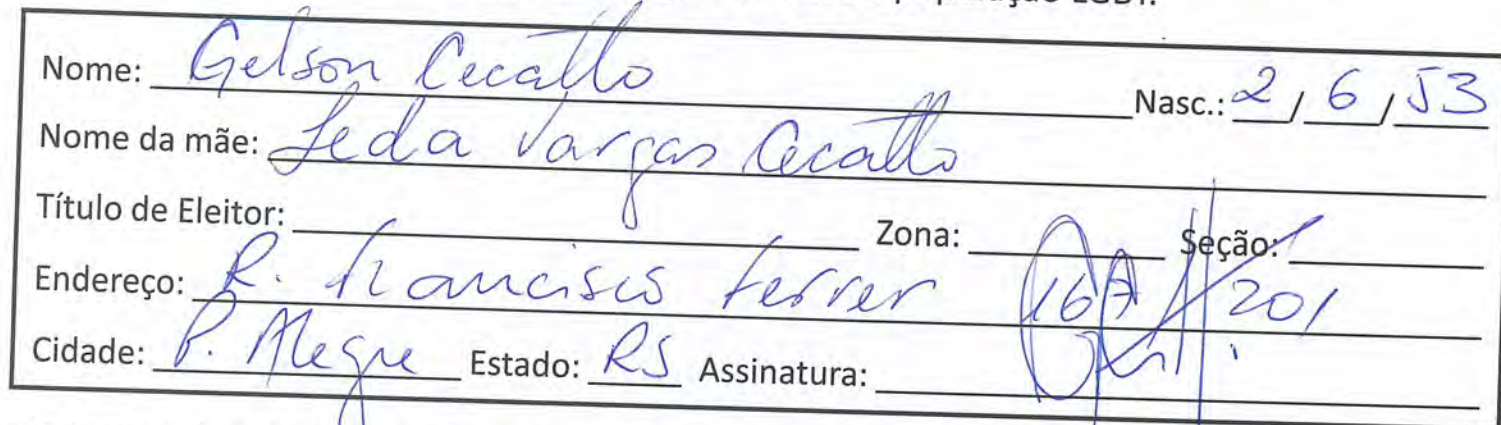 população LGBT.
Nome: Gelson Cecatto Nasc.: 2/6/53
Nome da mãe: Leda Vargas Cecatto
Título de Eleitor: Zona: Seção:
Endereço: R. Francisco Ferrer 201
Cidade: P. Alegre Estado: RS Assinatura: